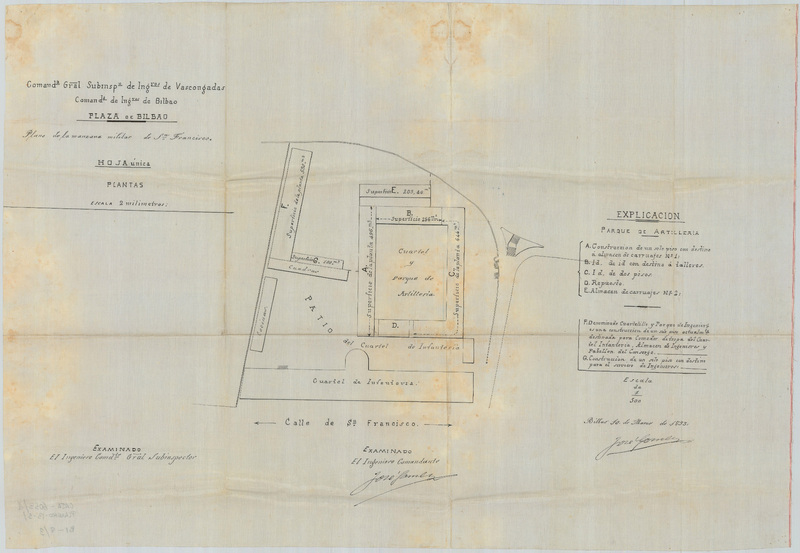 Comandª Gral Subinspª de Ingros de Vascongadas
Comandª de Ingros de Bilbao
PLAZA DE BILBAO
Plano de la manzana militar de Sn Francisco.
HOJA única
PLANTAS
ESCALA 2 milimetros.
F.
Superficie de la planta
G.
Superficie
Cuadras
Superficie E.
B.
Superficie
A.
Superficie de la planta
C.
Superficie de la planta
Cuartel
y
Parque de
Artillería
D.
PATIO
del Cuartel de Infantería
Cuartel de Infantería.
Calle de Sn Francisco.
EXPLICACION
PARQUE DE ARTILLERIA
A. Construccion de un solo piso con destino
á almacen de carruajes Nº 1.
B. Id. de id con destino á talleres.
C. Id. de dos pisos.
D. Repuesto.
E. Almacen de carruajes Nº 2.
F. Cuartelillo y Parque de Ingenieros
es una construccion de un solo piso actualmte
destinada para Comedor de tropa del Cuar-
tel Infantería, Almacen de Ingenieros y
Pabellon del Conserge.
G. Construccion de un solo piso con destino
para el servicio de Ingenieros.
Escala
de
2
500
Bilbao de de
José
EXAMINADO
El Ingeniero Comdte Gral Subinspector
EXAMINADO
El Ingeniero Comandante
José